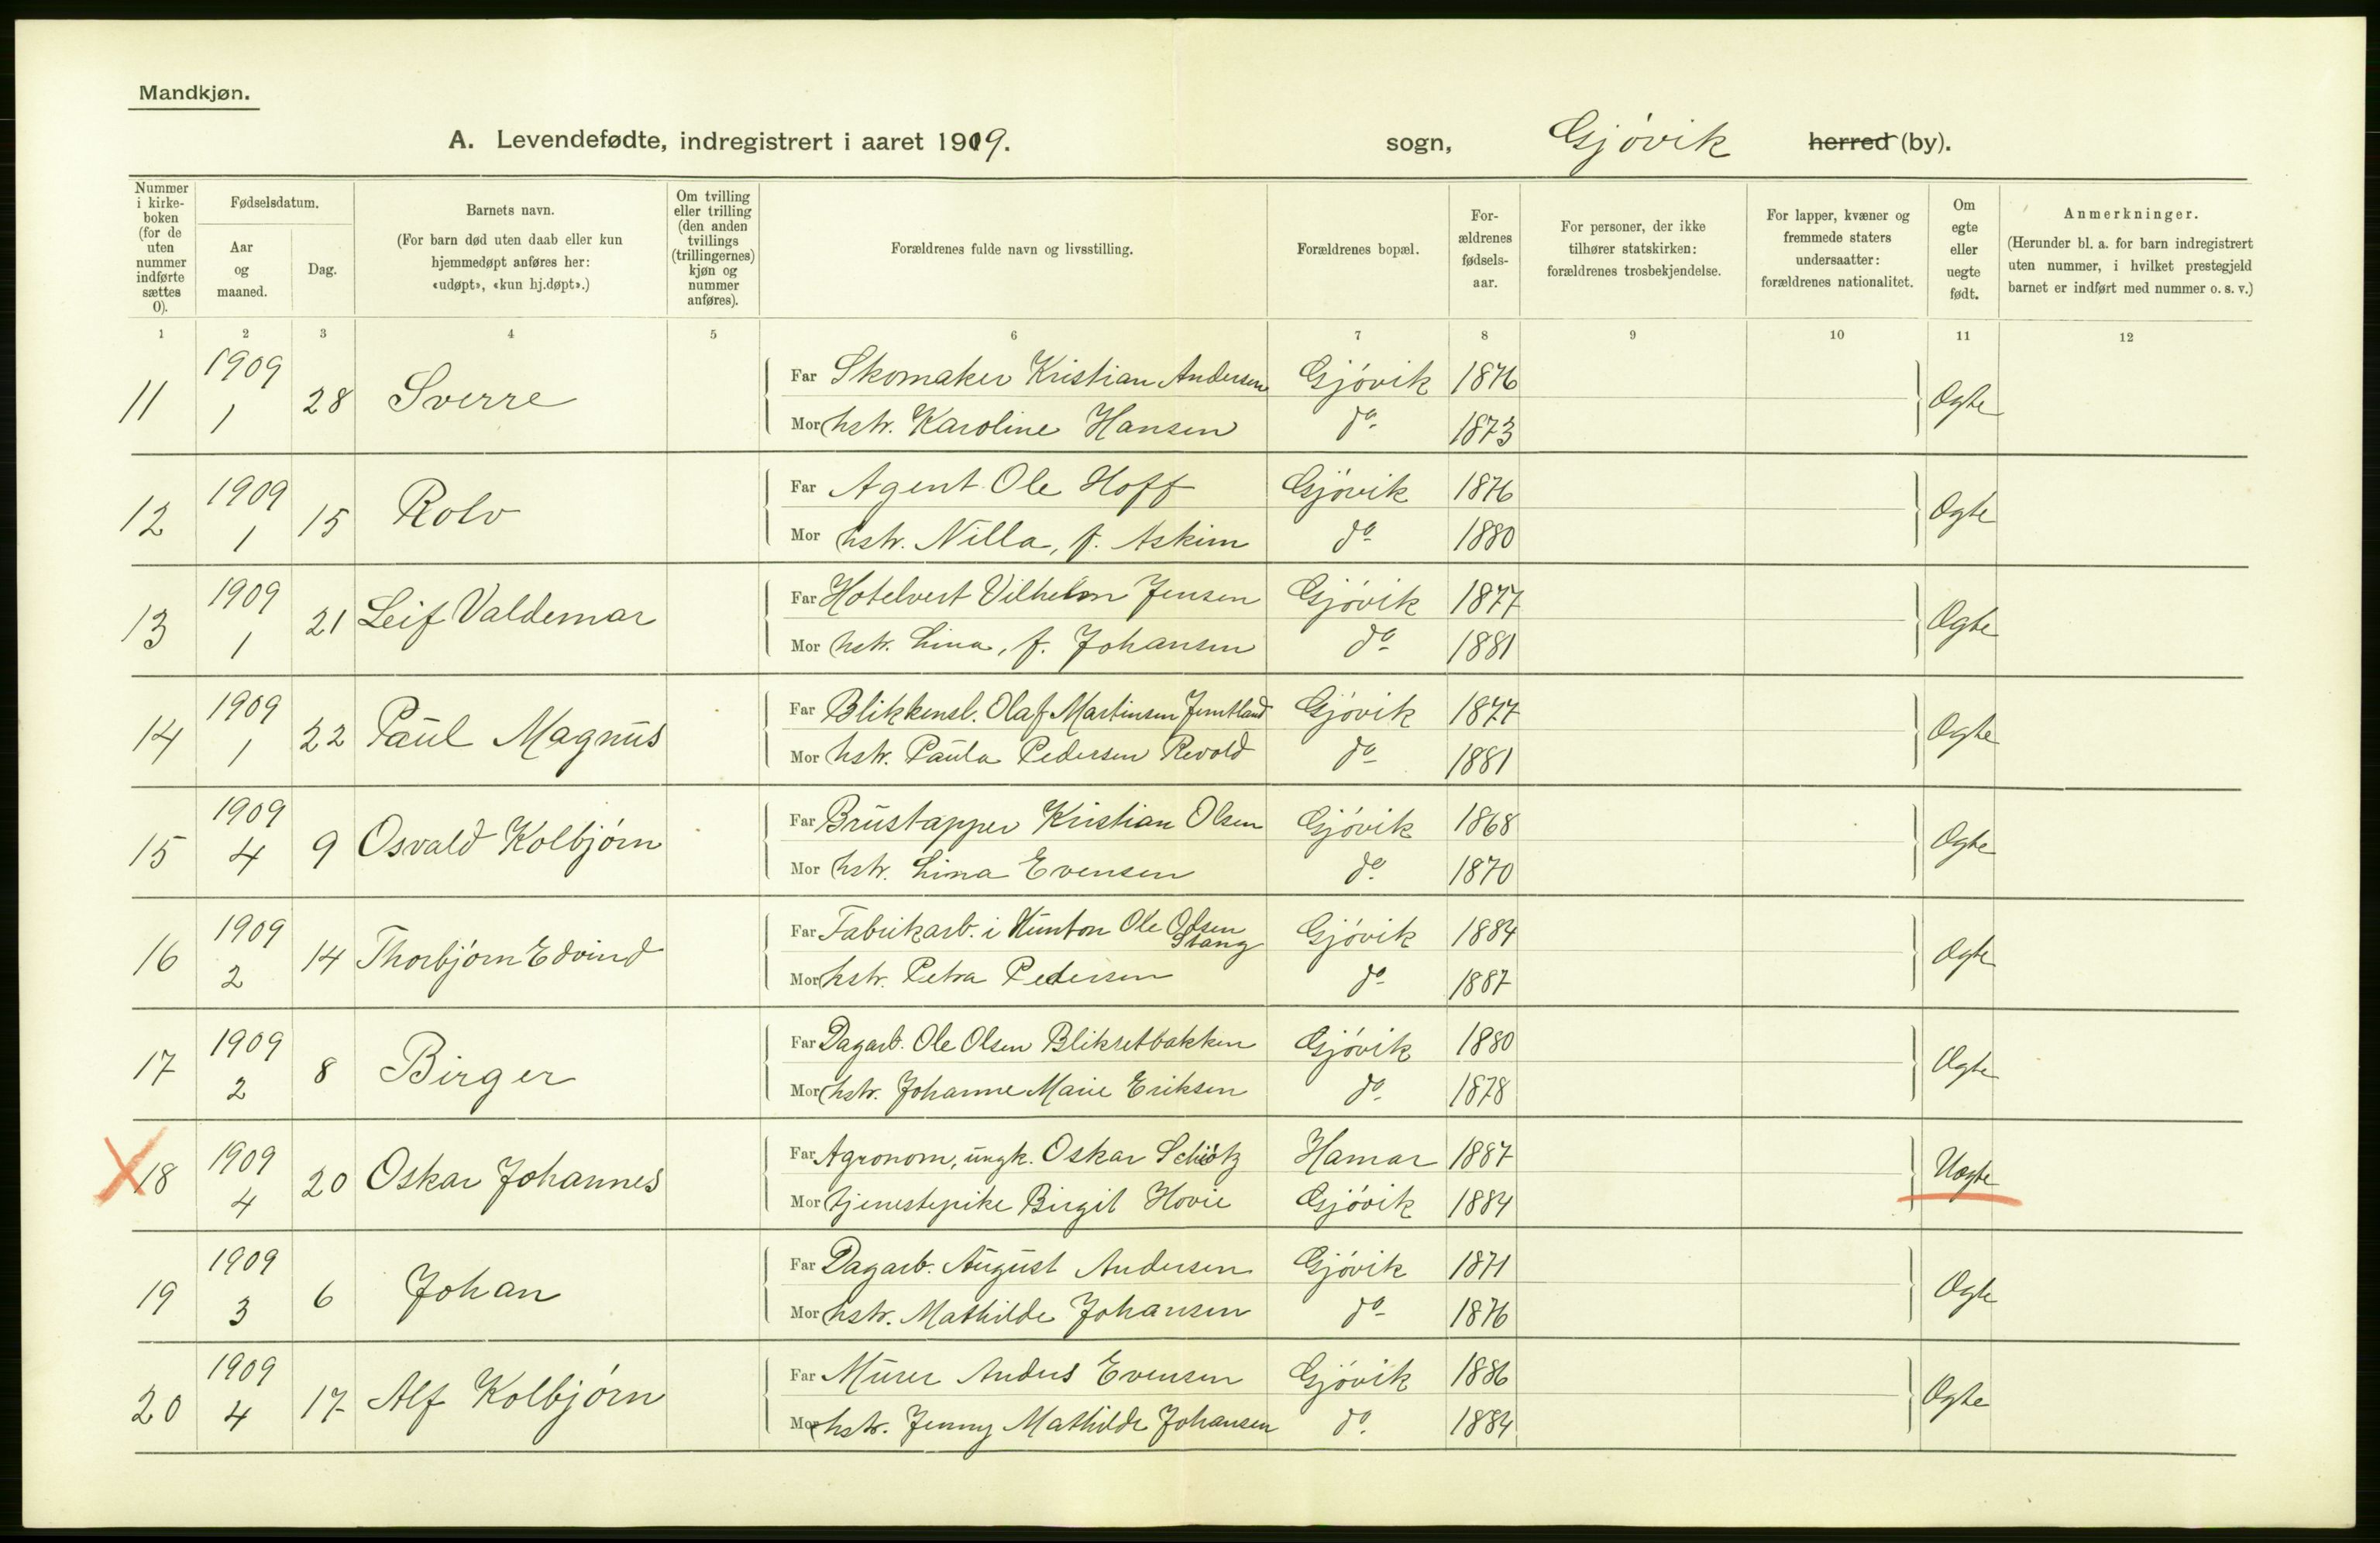 Mandkjøn.
A. Levendefødte, indregistrert i aaret 1909. sogn, Gjövik herred (by).
Nummer i kirke-boken (for de uten nummer indførte sættes 0).
Fødselsdatum.
Aar og maaned.
Dag.
Barnets navn.
(For barn død uten daab eller kun hjemmedøpt anføres her: «udøpt», «kun hj.døpt».)
Om tvilling eller trilling (den anden tvillings (trillingernes) kjøn og nummer anføres).
Forældrenes fulde navn og livsstilling.
Forældrenes bopæl.
For-ældrenes fødsels-aar.
For personer, der ikke tilhører statskirken: forældrenes trosbekjendelse.
For lapper, kvæner og fremmede staters undersaatter: forældrenes nationalitet.
Om egte eller uegte født.
Anmerkninger.
(Herunder bl. a. for barn indregistrert uten nummer, i hvilket prestegjeld barnet er indført med nummer o. s. v.)
1 2 3 4 5 6 7 8 9 10 11 12
11 1909 1 28 Sverre Far Skomaker Kristian Andersen Gjövik 1876 Ægte
Mor hstr. Karoline Hansen do 1873
12 1909 1 15 Rolv Far Agent Ole Hoff Gjövik 1876 Ægte
Mor hstr. Nilla, f. Askim do 1880
13 1909 1 21 Leif Valdemar Far Hotelvert Vilhelm Jensen Gjövik 1877 Ægte
Mor hstr. Lina, f. Johansen do 1881
14 1909 1 22 Paul Magnus Far Blikkensl. Olaf Martinsen Jemtland Gjövik 1877 Ægte
Mor hstr. Paula Pedersen Revold do 1881
15 1909 4 9 Osvald Kolbjörn Far Brustapper Kristian Olsen Gjövik 1868 Ægte
Mor hstr. Lina Evensen do 1870
16 1909 2 14 Thorbjörn Edvind Far Fabrikarb. i Hunton Ole Olsen Stang Gjövik 1884 Ægte
Mor hstr. Petra Pedersen do 1887
17 1909 2 8 Birger Far Dagarb. Ole Olsen Bliksetbakken Gjövik 1880 Ægte
Mor hstr. Johanne Marie Eriksen do 1878
X 18 1909 4 20 Oskar Johannes Far Agronom, ungk. Oskar Schiötz Hamar 1887 Uægte
Mor tjenestepike Birgit Hovie Gjövik 1884
19 1909 3 6 Johan Far Dagarb. August Andersen Gjövik 1871 Ægte
Mor hstr. Mathilde Johansen do 1876
20 1909 4 17 Alf Kolbjörn Far Murer Anders Evensen Gjövik 1886 Ægte
Mor hstr. Jenny Mathilde Johansen do 1884